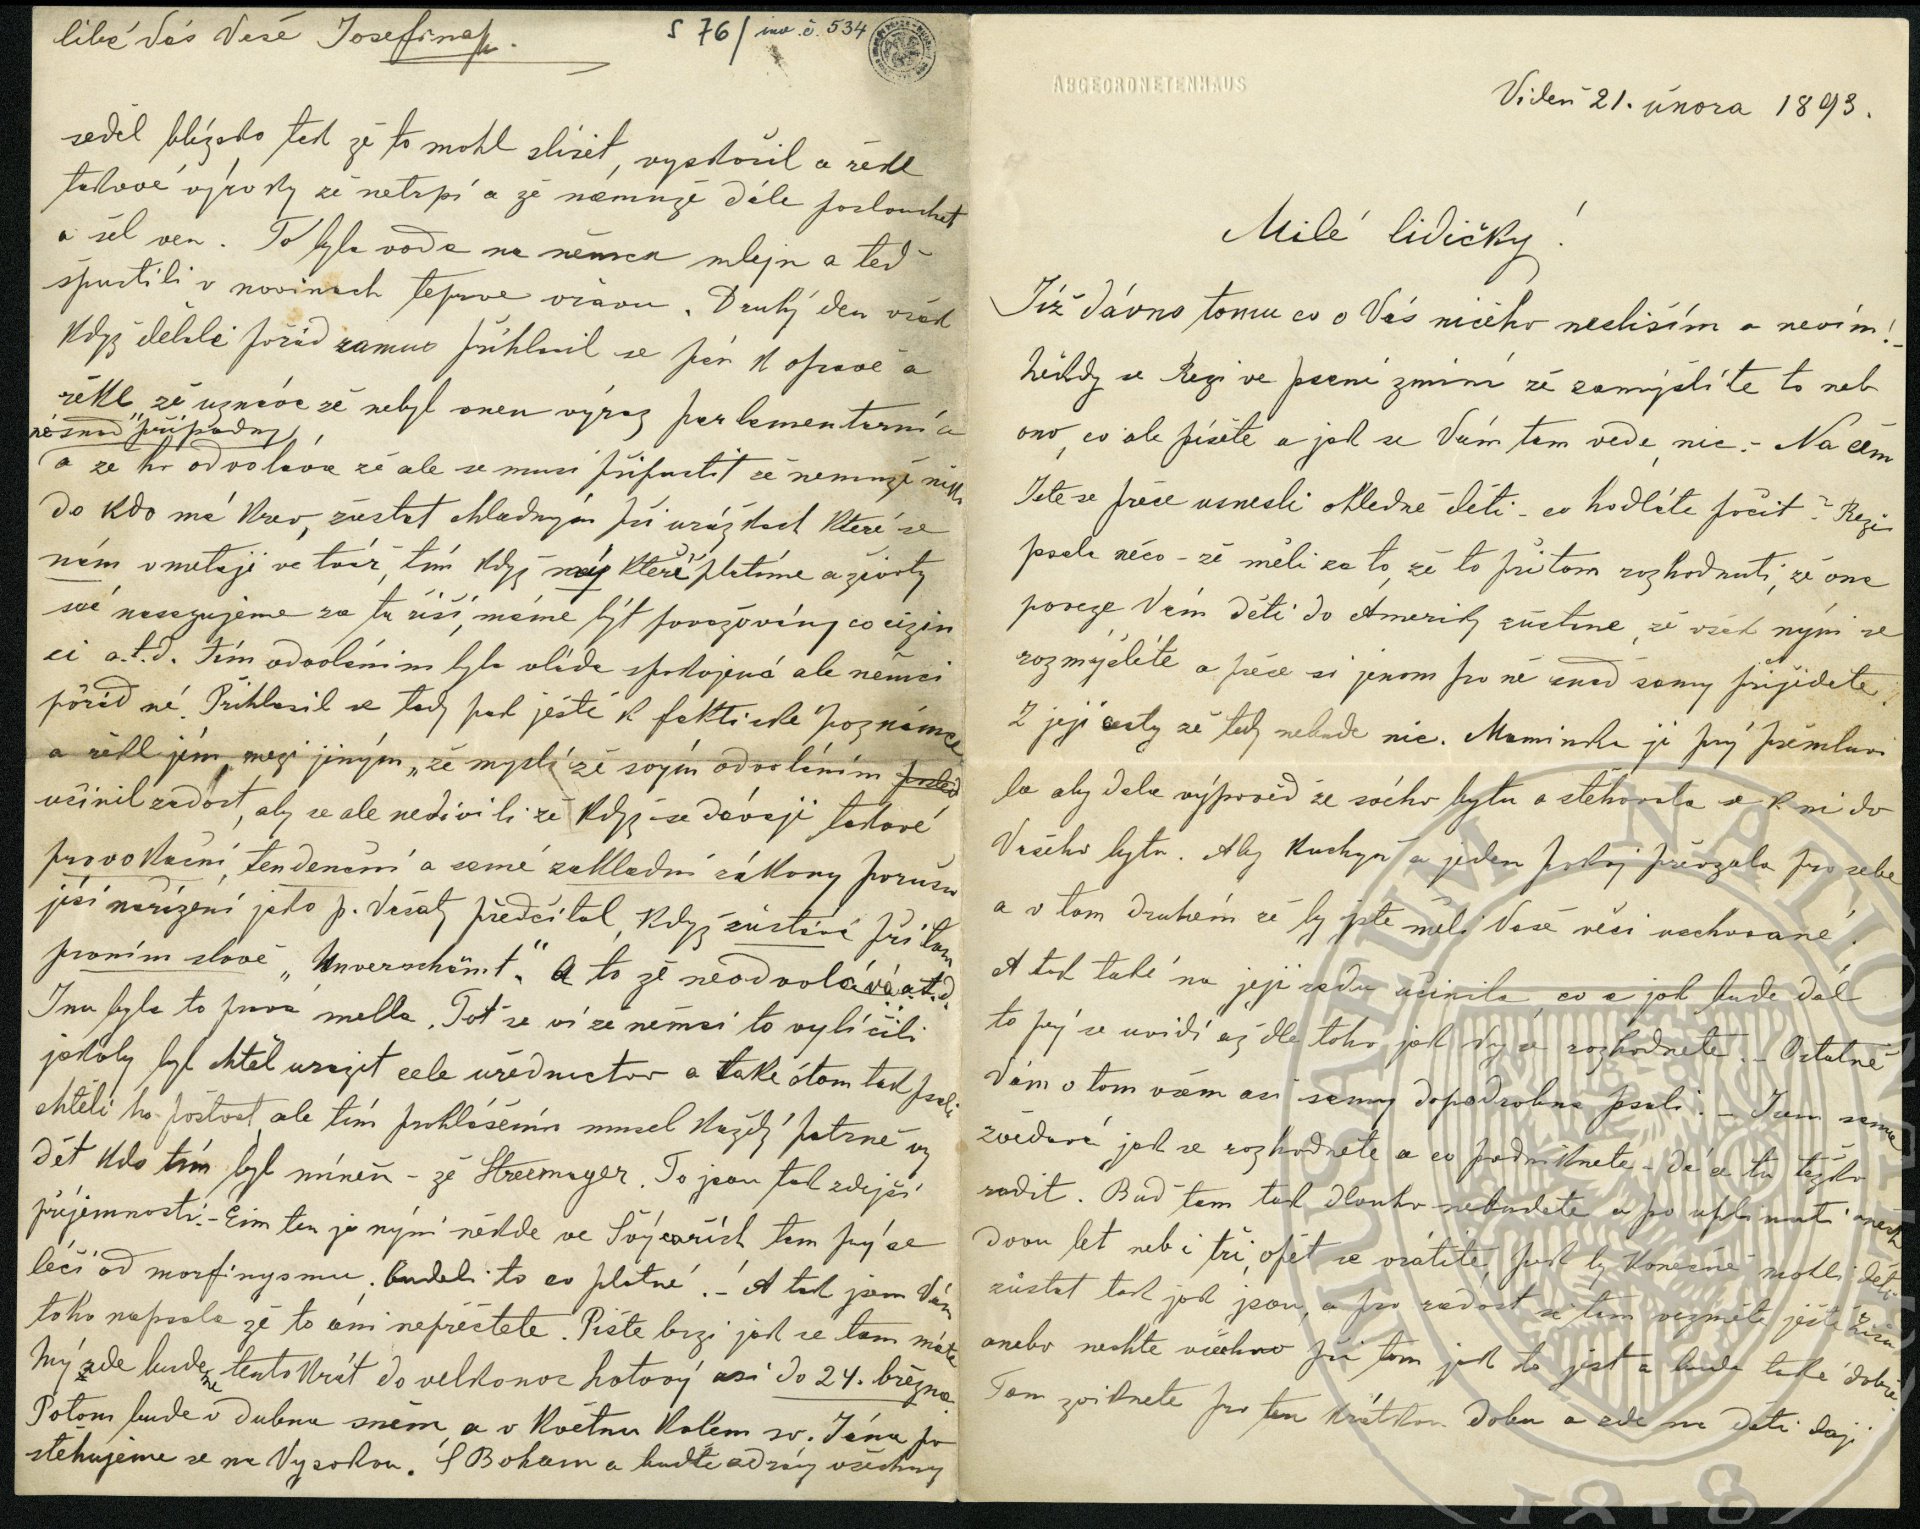 libá Vás Vaše Josefina
S 76/ inv. č. 534
seděl blízko tak že to mohl slišet, vyskočil a řekl
takové výroky že netrpí a že nemuže dále poslouchat
a šel ven. To byla voda na mlejn a teď
spustili v novinach teprve vřavu. Druhý den však
když dělali pořád zamuo přihlasil se pán k opravě a
řekl že uznává že nebyl onen výraz parlamentarní a
né snad "případny"
a že ho odvolává že ale se musí připustit že nemuže nik
do kdo má krev, zůstat chladným při urážkach které se
nám vmetají ve tvář, tím když které platíme a životy
své nasazujeme za tu říši, máme být považovány co cizin
ci a.t.d. Tím odvoláním byla vláda spokojená ale němci
pořád né. Přihlasil se tedy pak ještě k faktické poznámce
a řekl jím mezi jiným „že myslí že svým odvoláním
učinil zadost, aby se ale nedivili že když se dávají takové
provokační, tendenční a samé zakladní zákony porušu
jící nařízení jako p. Vašatý předčital, když zůstává při tom
prvním slově „Unverschämt." A to že neodvolává a.t.d.
Inu byla to prvá mella. Toť se ví že němci to vylíčili
jakoby byl chtěl urazit celé uřednictvo a také o tom tak psali
chtěli ho poštvat, ale tím prohlášením musel každý patrně vy
dět kdo tím byl míněn - že Stremayer. To jsou tak zdejší
příjemnosti. - Eim ten je nýní někde ve Švýcařích tam prý se
léčí od morfinysmu, budeli to co platné. - A tak jsem Vám
toho napsala že to ani nepřečtete. Pište brzi jak se tam máte
Mý zde budeme tentokrát do velkonoc hotový asi do 24. března
Potom bude v dubnu sněm a v květnu kolem sv. Jána po
stěhujeme se na Vysokou. S Bohem a buďte zdrávy všechny
ABGEORDNETENHAUS
Videň 21. února 1893.
Milé lidičky!
Již dávno tomu co o Vás ničeho nesliším a nevím! -
Někdy se Rezi ve psaní zmíní že zamýšlíte to neb
ono, co ale píšete a jak se Vám tam vede, nic. - Na čem
Jste se přece usnesli ohledně děti - co hodláte počít? Rezi
psala něco - že měli za to, že to při tom rozhodnutí, že ona
poveze Vám děti do Ameriky zůstane, že však nýní se
rozmýšlíte a přece si jenom pro ně snad samy přijedete.
Z její cesty že tedy nebude nic. Maminka ji prý přemluvi
la aby dala výpověď ze svého bytu a stěhovala se k ní do
Vašeho bytu. Aby kuchyň a jeden pokoj převzala pro sebe
a v tom druhém že by jste měli Vaše věci uschované.
A tak také na její radu učinila, co a jak bude dál
to prý se uvidí až dle toho jak Vý se rozhodnete. - Ostatně
Vám o tom vám asi samy dopodrobna psali. - Jsem sama
zvědavá jak se rozhodnete a co podniknete - dá se tu těžko
radit. Buď tam tak dlouho nebudete a po uplinutí aneb
dvou let neb i tří, opět se vrátíte, pak by konečně mohli děti
zůstat tak jak jsou, a pro radost si tam vezměte ještě
anebo nechte všechno při tom jak to jest a bude také dobře.
Tam zviknete pro tu krátkou dobu a zde na děti dají
MUSAEUM NATIONALE
1818